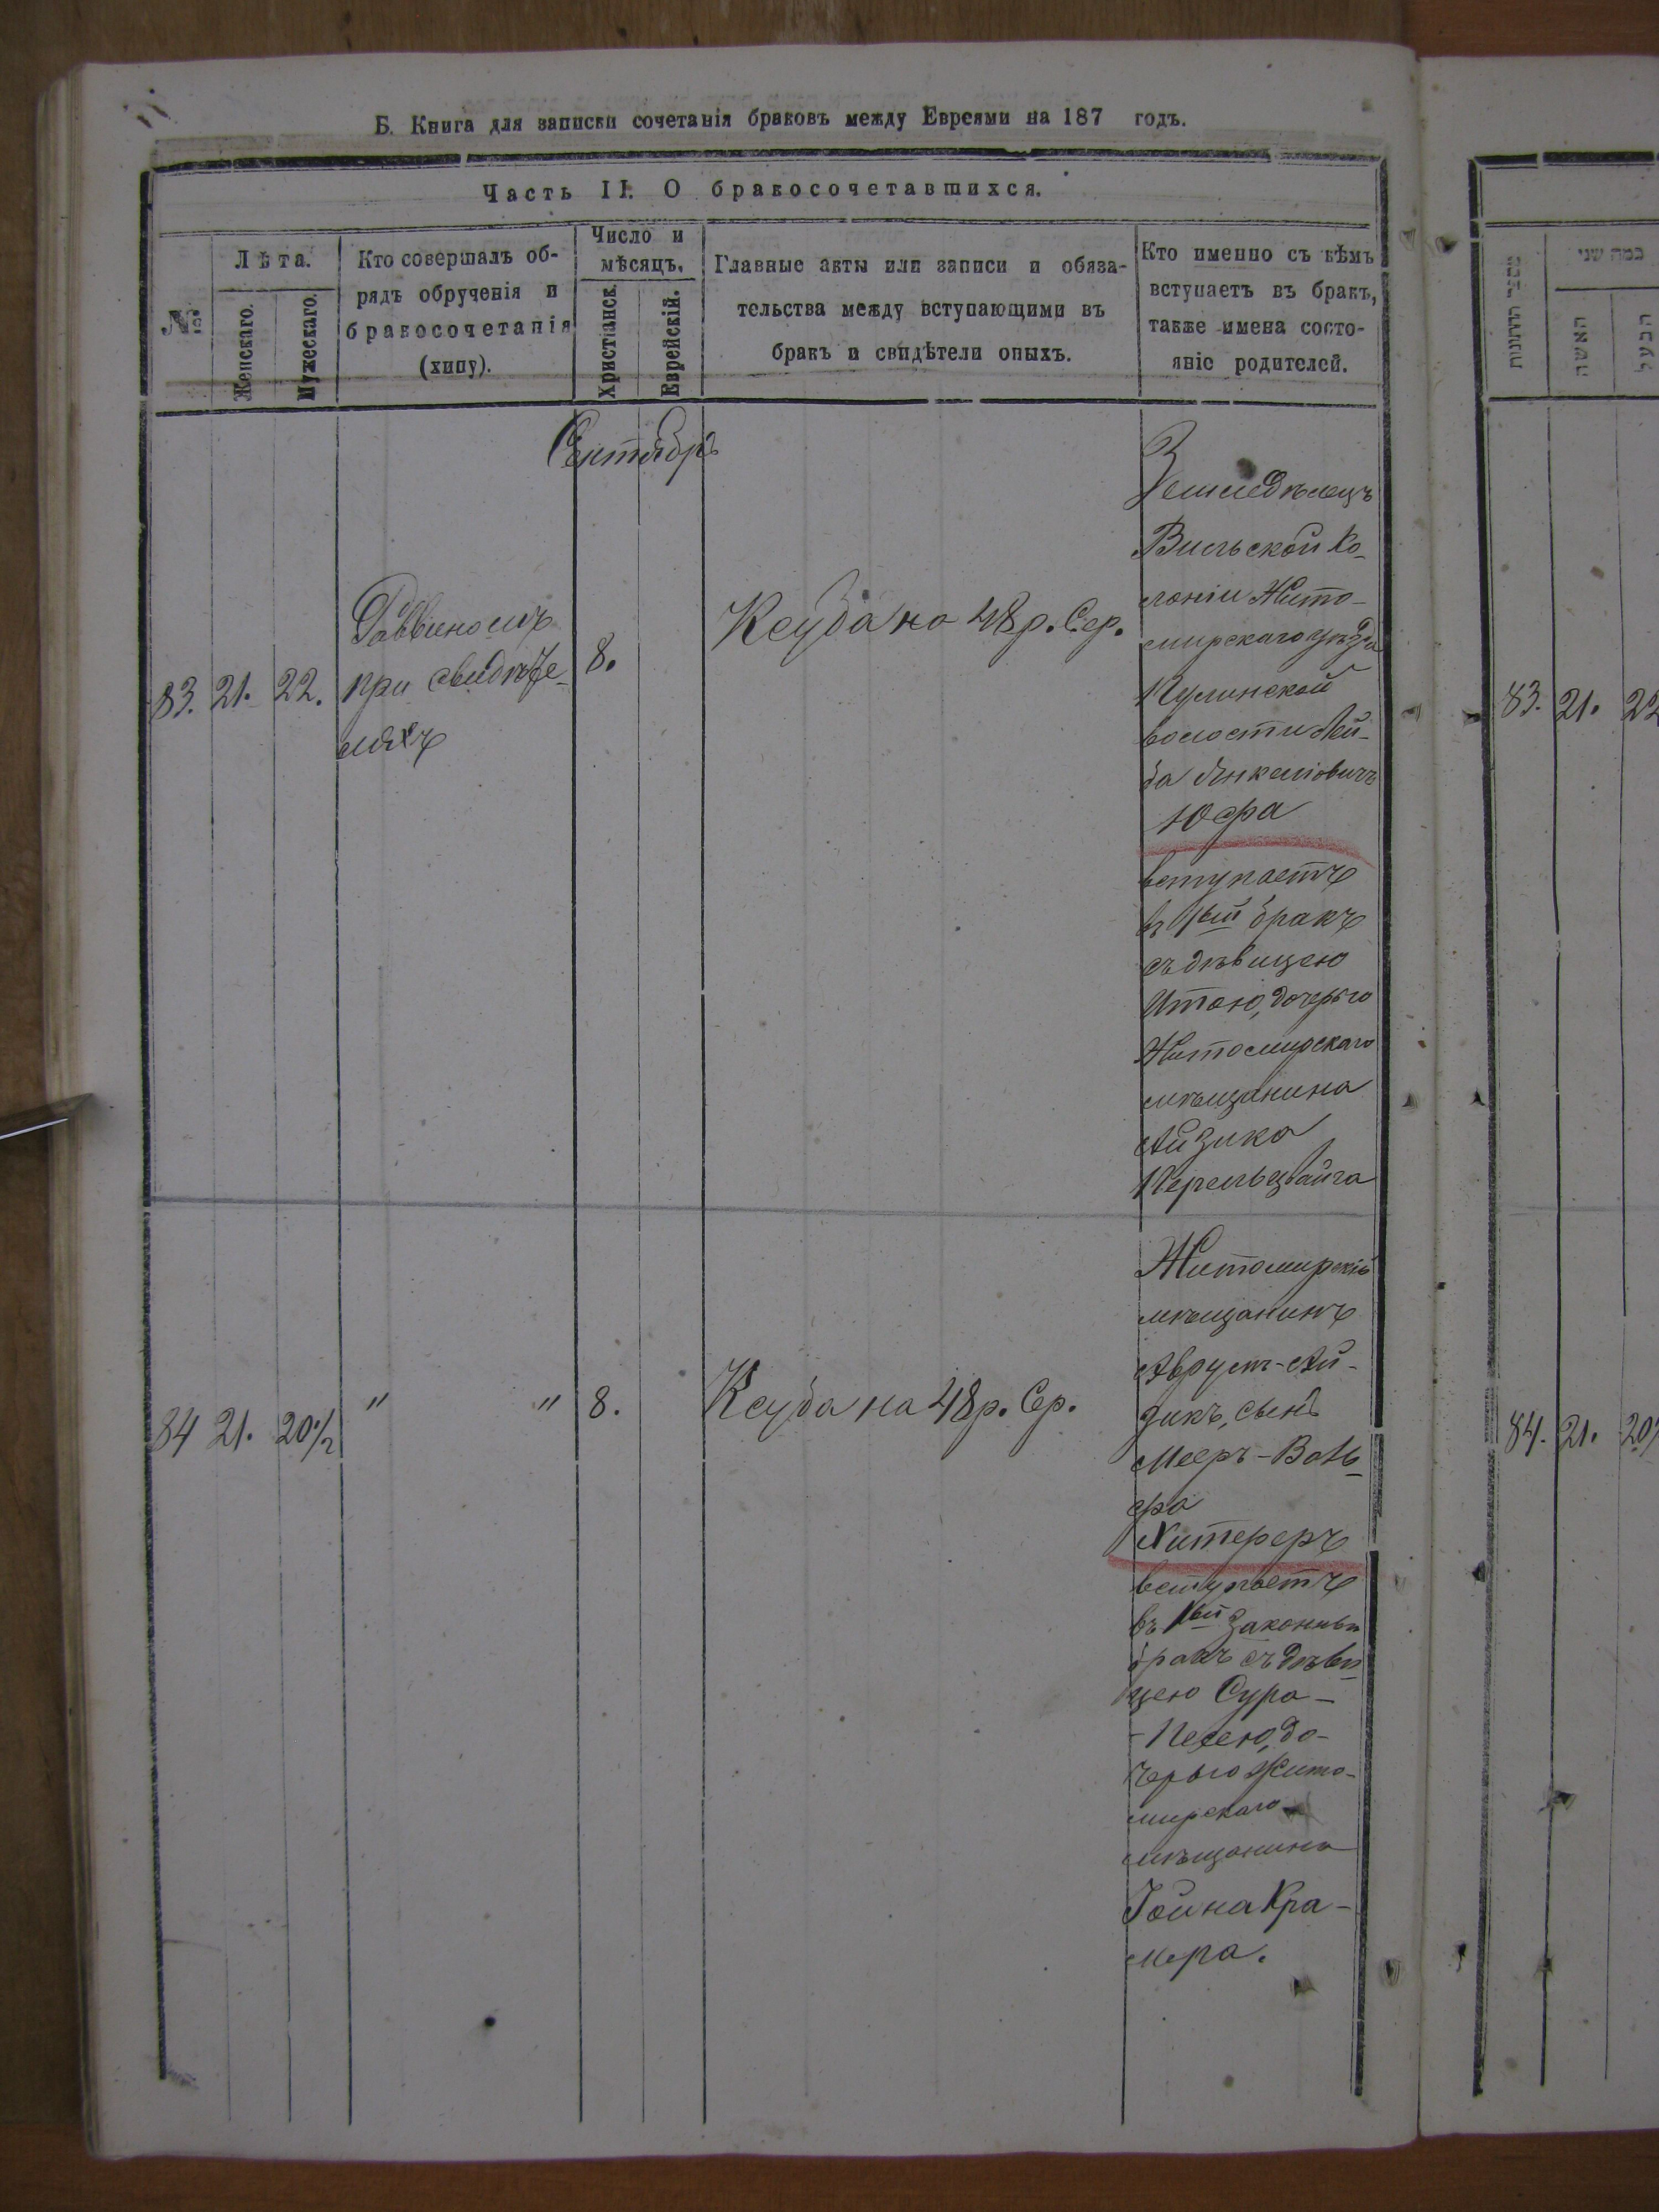 Б. Книга для записки сочетанія браковъ между Евреями на 187 годъ.
Часть II. О бракосочетавшихся.
№
Лѣта.
Женскаго.
Мужескаго.
Кто совершалъ об-
рядъ обрученія и
бракосочетанія
(хипу).
Число и
мѣсяцъ.
Христіанск.
Еврейскій.
Главные акты или записи и обяза-
тельства между вступающими въ
бракъ и свидѣтели оныхъ.
Кто именно съ кѣмъ
вступаетъ въ бракъ,
также имена состо-
яніе родителей.
Сентябрь
83. 21. 22.
Раввиномъ
при свидѣте-
ляхъ
8.
Ксуба на 48 р. Сер.
Земледѣлецъ
Вильской Ко-
лоніи Жито-
мирскаго уѣзда
Кулинской
волости Лей-
ба Янкеліовичъ
Юфа
вступаетъ
въ 1ый бракъ
съ дѣвицею
Итою, дочерью
Житомирскаго
мѣщанина
Айзика
Перельцвайга
84 21. 20½
" "
8.
Ксуба на 48 р. Сер.
Житомирскій
мѣщанинъ
Аврумъ-Ай-
зикъ, сынъ
Мееръ-Воль-
фа
Хитереръ
вступаетъ
въ 1ый законный
бракъ съ дѣви-
цею Сура-
-Песею, до-
черью Жито-
мирскаго
мѣщанина
Іойна Кра-
мера.
מספר החתונות
כמה שני
האשה
הבעל
83. 21. 22
84. 21. 20